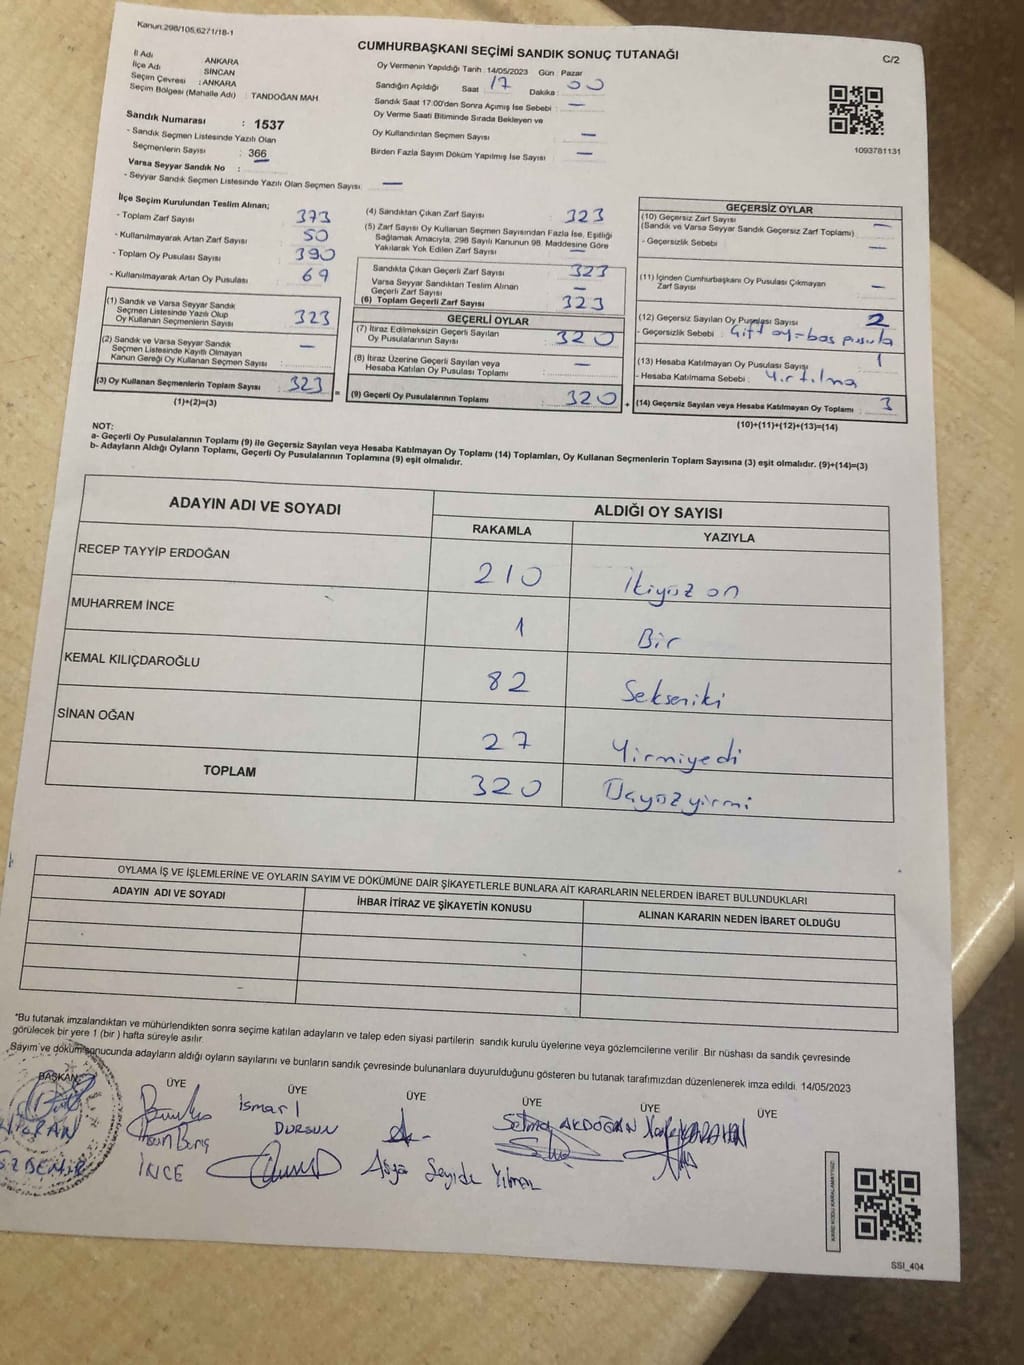 Kanun:298/105,6271/18-1
CUMHURBAŞKANI SEÇİMİ SANDIK SONUÇ TUTANAĞI
C/2
İl Adı ANKARA
İlçe Adı SİNCAN
Seçim Çevresi : ANKARA
Seçim Bölgesi (Mahalle Adı) : TANDOĞAN MAH
Oy Vermenin Yapıldığı Tarih :14/05/2023 Gün : Pazar
Sandığın Açıldığı Saat : 17 Dakika : 00
Sandık Saat 17:00'den Sonra Açımış İse Sebebi : —
Oy Verme Saati Bitiminde Sırada Bekleyen ve
Oy Kullandırılan Seçmen Sayısı —
Birden Fazla Sayım Döküm Yapılmış İse Sayısı —
1093781131
Sandık Numarası : 1537
- Sandık Seçmen Listesinde Yazılı Olan
Seçmenlerin Sayısı : 366
Varsa Seyyar Sandık No :
- Seyyar Sandık Seçmen Listesinde Yazılı Olan Seçmen Sayısı: —
İlçe Seçim Kurulundan Teslim Alınan;
- Toplam Zarf Sayısı 373
- Kullanılmayarak Artan Zarf Sayısı 50
- Toplam Oy Pusulası Sayısı 390
- Kullanılmayarak Artan Oy Pusulası 69
(1) Sandık ve Varsa Seyyar Sandık
Seçmen Listesinde Yazılı Olup
Oy Kullanan Seçmenlerin Sayısı 323
(2) Sandık ve Varsa Seyyar Sandık
Seçmen Listesinde Kayıtlı Olmayan
Kanun Gereği Oy Kullanan Seçmen Sayısı : —
(3) Oy Kullanan Seçmenlerin Toplam Sayısı 323 =
(1)+(2)=(3)
(4) Sandıktan Çıkan Zarf Sayısı 323
(5) Zarf Sayısı Oy Kullanan Seçmen Sayısından Fazla İse, Eşitliği
Sağlamak Amacıyla, 298 Sayılı Kanunun 98. Maddesine Göre
Yakılarak Yok Edilen Zarf Sayısı —
Sandıkta Çıkan Geçerli Zarf Sayısı 323
Varsa Seyyar Sandıktan Teslim Alınan
Geçerli Zarf Sayısı —
(6) Toplam Geçerli Zarf Sayısı 323
GEÇERLİ OYLAR
(7) İtiraz Edilmeksizin Geçerli Sayılan
Oy Pusulalarının Sayısı 320
(8) İtiraz Üzerine Geçerli Sayılan veya
Hesaba Katılan Oy Pusulası Toplamı —
(9) Geçerli Oy Pusulalarının Toplamı 320 +
GEÇERSİZ OYLAR
(10) Geçersiz Zarf Sayısı
(Sandık ve Varsa Seyyar Sandık Geçersiz Zarf Toplamı) : —
- Geçersizlik Sebebi : —
(11) İçinden Cumhurbaşkanı Oy Pusulası Çıkmayan
Zarf Sayısı —
(12) Geçersiz Sayılan Oy Pusulası Sayısı 2
- Geçersizlik Sebebi : Çift oy-boş pusula
(13) Hesaba Katılmayan Oy Pusulası Sayısı 1
- Hesaba Katılmama Sebebi : Yırtılma
(14) Geçersiz Sayılan veya Hesaba Katılmayan Oy Toplamı 3
(10)+(11)+(12)+(13)=(14)
NOT:
a- Geçerli Oy Pusulalarının Toplamı (9) ile Geçersiz Sayılan veya Hesaba Katılmayan Oy Toplamı (14) Toplamları, Oy Kullanan Seçmenlerin Toplam Sayısına (3) eşit olmalıdır. (9)+(14)=(3)
b- Adayların Aldığı Oyların Toplamı, Geçerli Oy Pusulalarının Toplamına (9) eşit olmalıdır.
ADAYIN ADI VE SOYADI ALDIĞI OY SAYISI
RAKAMLA YAZIYLA
RECEP TAYYİP ERDOĞAN 210 İkiyüz on
MUHARREM İNCE 1 Bir
KEMAL KILIÇDAROĞLU 82 Sekseniki
SİNAN OĞAN 27 Yirmiyedi
TOPLAM 320 Üçyüzyirmi
OYLAMA İŞ VE İŞLEMLERİNE VE OYLARIN SAYIM VE DÖKÜMÜNE DAİR ŞİKAYETLERLE BUNLARA AİT KARARLARIN NELERDEN İBARET BULUNDUKLARI
ADAYIN ADI VE SOYADI İHBAR İTİRAZ VE ŞİKAYETİN KONUSU ALINAN KARARIN NEDEN İBARET OLDUĞU
*Bu tutanak imzalandıktan ve mühürlendikten sonra seçime katılan adayların ve talep eden siyasi partilerin sandık kurulu üyelerine veya gözlemcilerine verilir. Bir nüshası da sandık çevresinde
görülecek bir yere 1 (bir ) hafta süreyle asılır.
Sayım ve döküm sonucunda adayların aldığı oyların sayılarını ve bunların sandık çevresinde bulunanlara duyurulduğunu gösteren bu tutanak tarafımızdan düzenlenerek imza edildi. 14/05/2023
BAŞKAN ÜYE ÜYE ÜYE ÜYE ÜYE ÜYE
İsmail
DURSUN
Selma AKDOĞAN
İNCE
Ayşe Seyide Yılmaz
KARE KODU KARALAMAYINIZ!
SSI_404